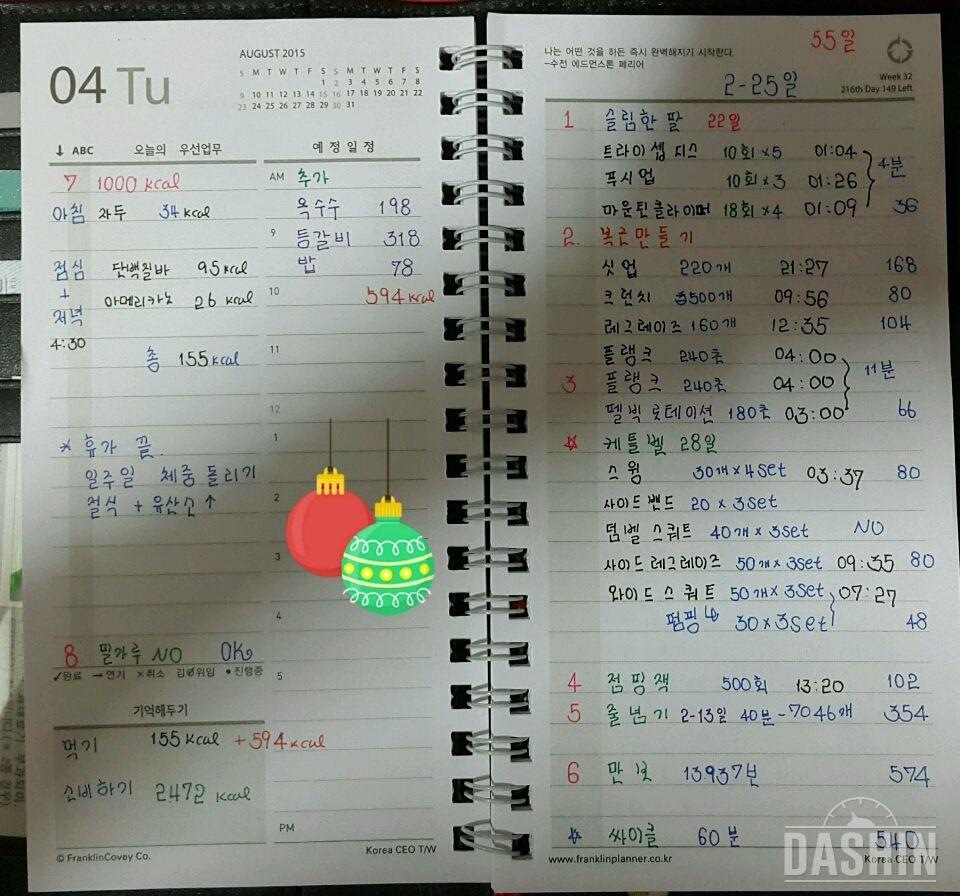 04 Tu
AUGUST 2015
S M T W T F S
1 2 3 4 5 6 7 8
9 10 11 12 13 14 15 16 17 18 19 20 21 22
23 24 25 26 27 28 29 30 31
↓ ABC 오늘의 우선업무
7 1000 kcal
아침 자두 34 kcal
점심 단백질바 95 kcal
+ 아메리카노 26 kcal
저녁
4:30
총 155 kcal
* 휴가 끝.
일주일 체중 돌리기
절식 + 유산소 ↑
8 밀가루 NO OK
✓완료 →연기 ×취소 위임 •진행중
기억해두기
먹기 155 kcal + 594 kcal
소비하기 2472 kcal
© FranklinCovey Co.
예정일정
AM 추가
옥수수 198
9 등갈비 318
밥 78
10 594 kcal
11
12
1
2
3
4
5
PM
Korea CEO T/W
55일
나는 어떤 것을 하든 즉시 완벽해지기 시작한다.
-수전 에드먼스톤 페리어
2-25일
Week 32
216th Day 149 Left
1 슬림한 팔 22일
트라이셉 딥스 10회×5 01:04
푸시업 10회×3 01:26 4분
마운틴클라이머 18회×4 01:09 36
2. 복근만들기
싯업 220개 21:27 168
크런치 500개 09:56 80
레그레이즈 160개 12:35 104
플랭크 240초 04:00
3 플랭크 240초 04:00 11분
펠빅 로테이션 180초 03:00 66
☆ 케틀벨 28일
스윙 30개×4set 03:37 80
사이드 밴드 20×3set
덤벨 스쿼트 40개×3set NO
사이드레그레이즈 50개×3set 09:35 80
와이드 스쿼트 50개×3set 07:27
펌핑 ↳ 30×3set 48
4 점핑잭 500회 13:20 102
5 줄넘기 2-13일 40분-7046개 354
6 만보 13937보 574
☆ 싸이클 60분 540
www.franklinplanner.co.kr
Korea CEO T/W
DASHIN